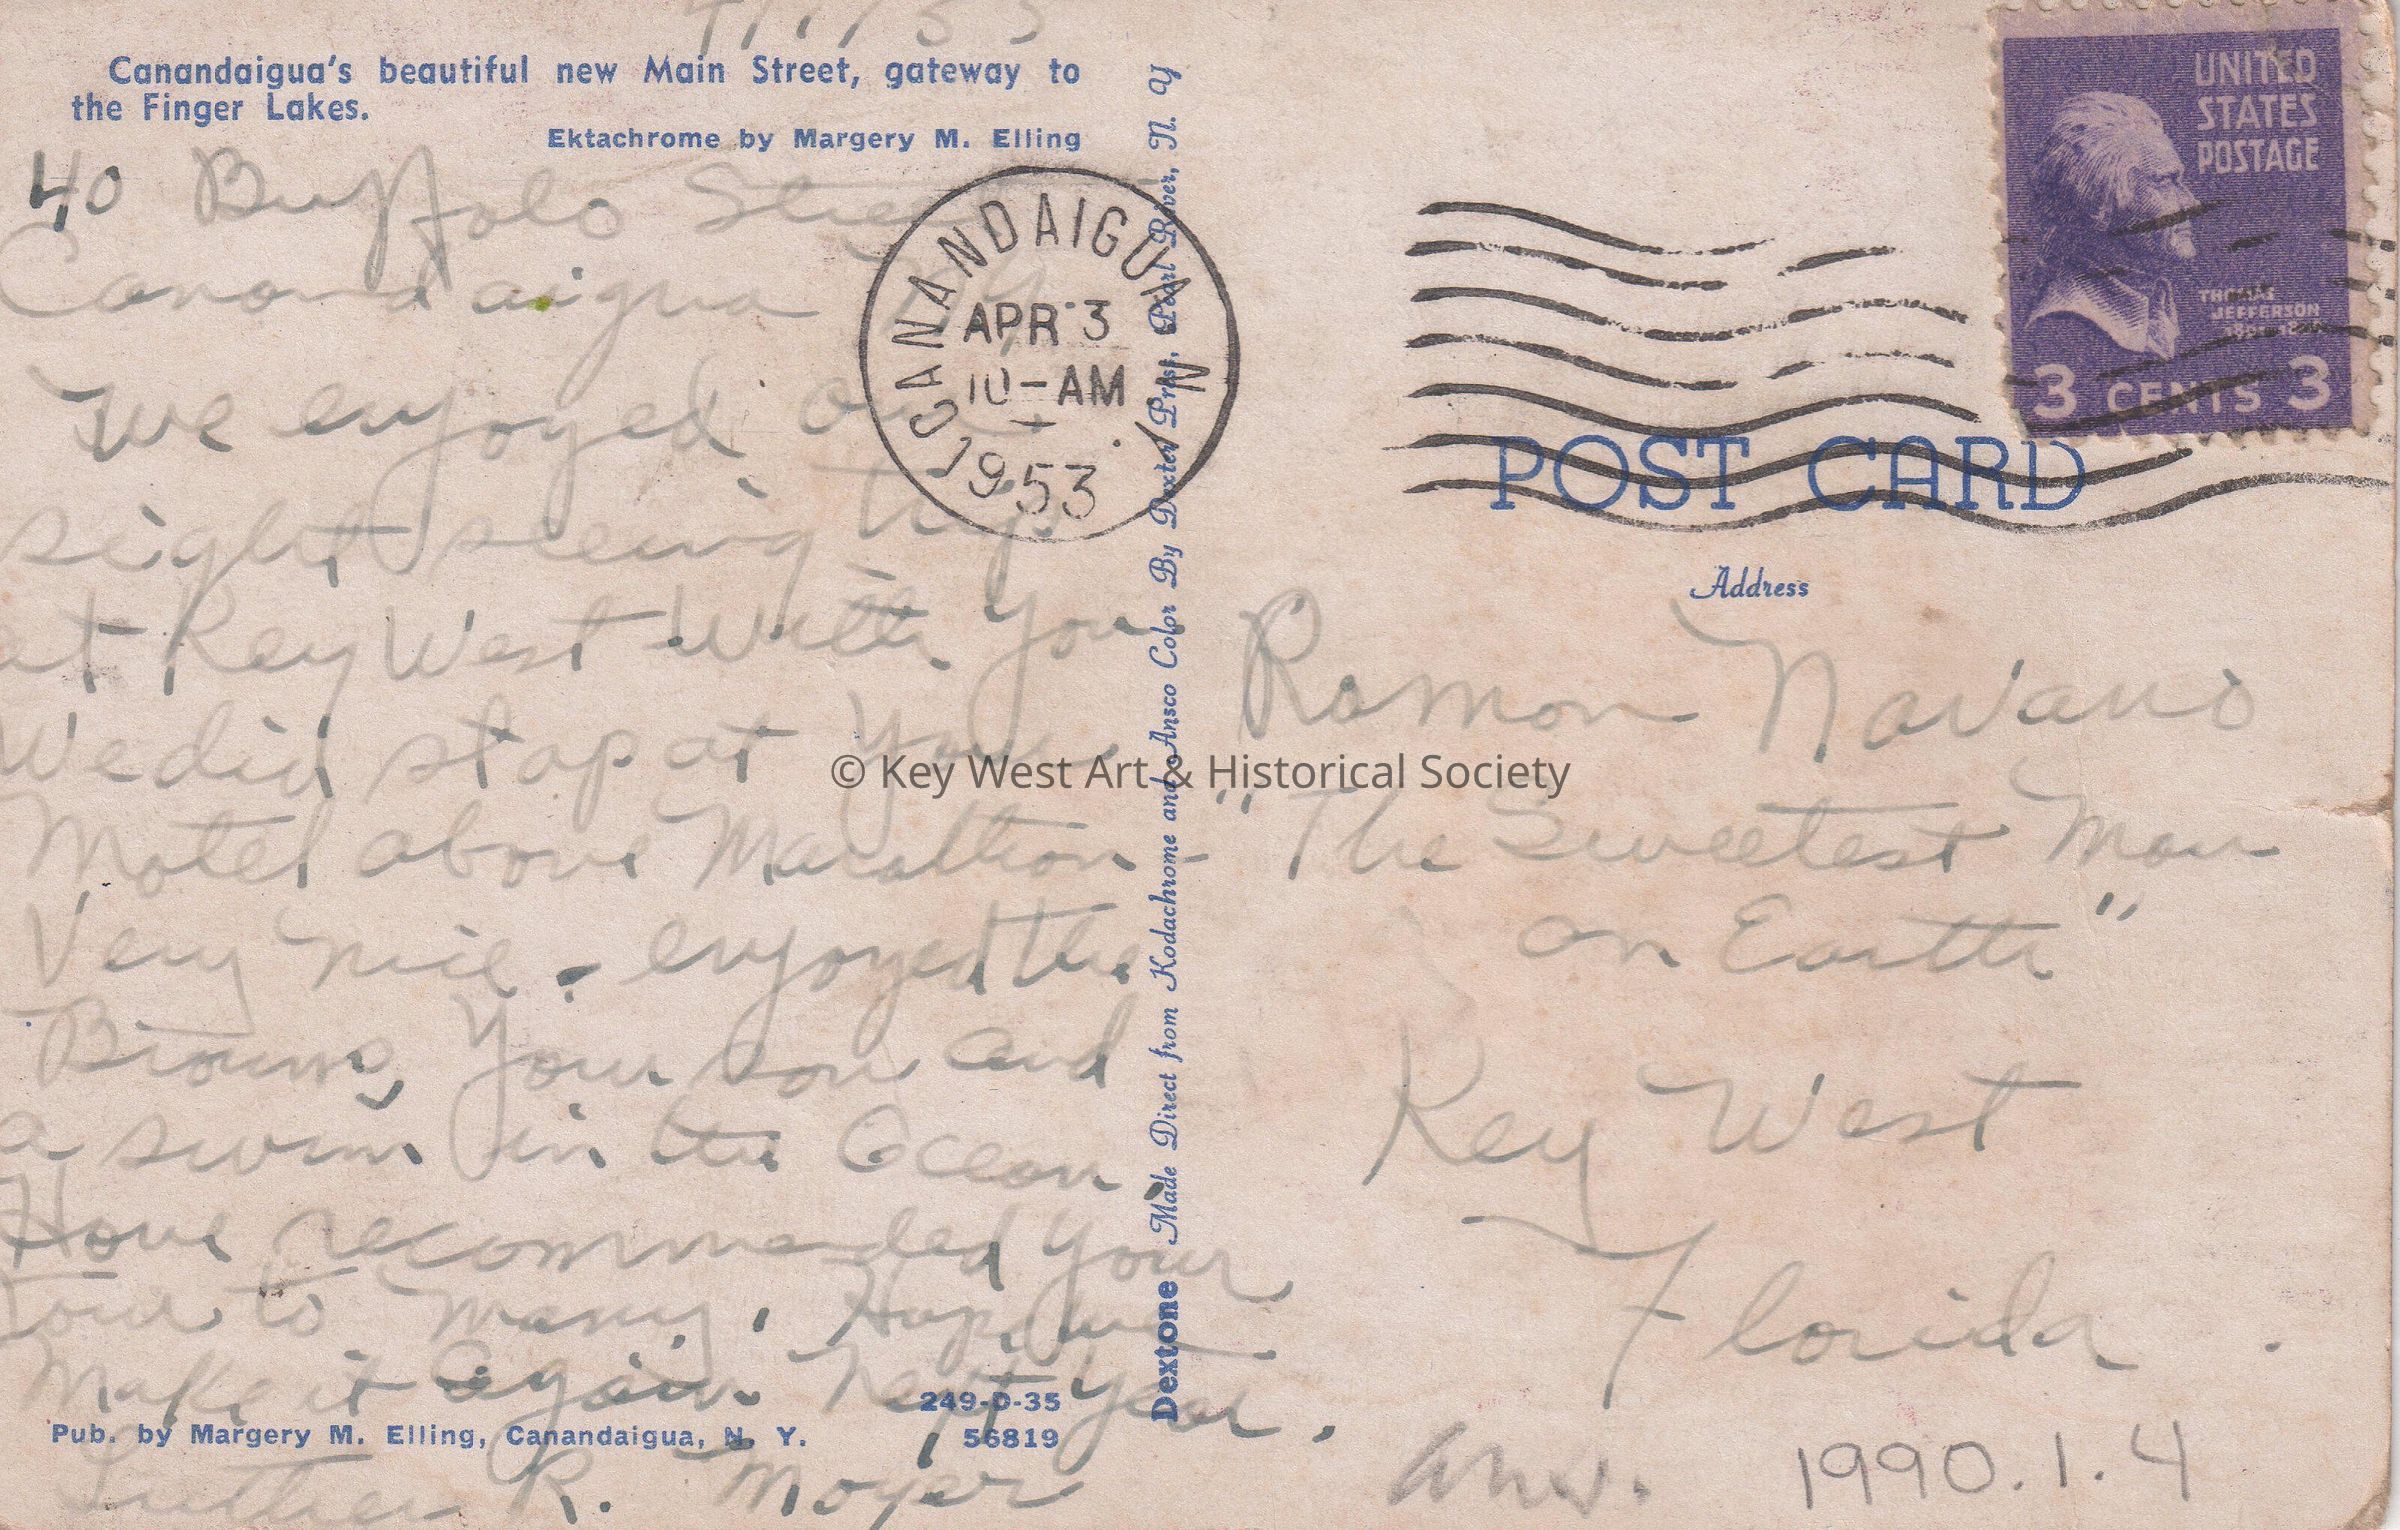 4/1/53
Canandaigua's beautiful new Main Street, gateway to
the Finger Lakes.
Ektachrome by Margery M. Elling
40 Buffalo Street
Canandaigua NY
We enjoyed our
sight seeing trip
at Key West with you
We did stop at your
Motel above Marathon -
Very nice - enjoyed the
Browns, your son and
a swim in the Ocean.
Have recommended your
Tour to many. Hope we
make it again next year.
Luther R. Moyer
249-D-35
Pub. by Margery M. Elling, Canandaigua, N. Y.
56819
CANANDAIGUA N.Y.
APR 3
10-AM
1953
Dextone Made Direct from Kodachrome and Ansco Color By Dexter Press, Pearl River, N. Y
UNITED
STATES
POSTAGE
THOMAS
JEFFERSON
3 CENTS 3
POST CARD
Address
Ramon Navarro
"The Sweetest Man
on Earth"
Key West
Florida
Ans.
1990.1.4
© Key West Art & Historical Society